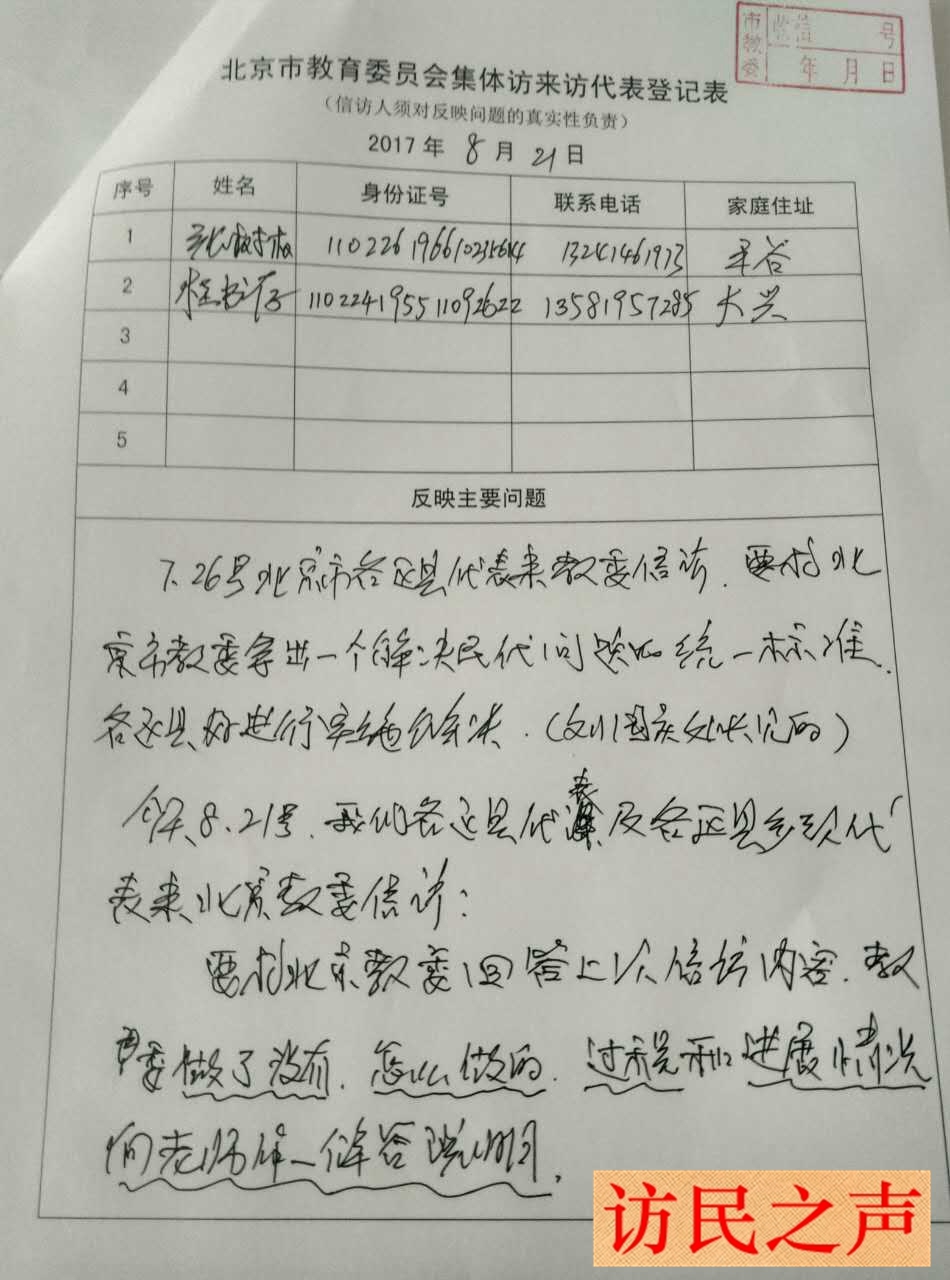 市教委 信 号
年 月 日
北京市教育委员会集体访来访代表登记表
（信访人须对反映问题的真实性负责）
2017 年 8 月 21 日
序号 姓名 身份证号 联系电话 家庭住址
1 平谷
2 110224195511092622 13581957285 大兴
3
4
5
反映主要问题
7.26号北京市各区县代表来教委信访.要求北
京市教委拿出一个解决民代问题的统一标准.
各区县好进行实施解决.
8.21号.我们各区县代表及各区县乡镇代
表来北京教委信访:
要求北京教委回答上次信访内容.教
育委做了没有.怎么做的.过程和进展情况
向老师作一解答说明.
访民之声